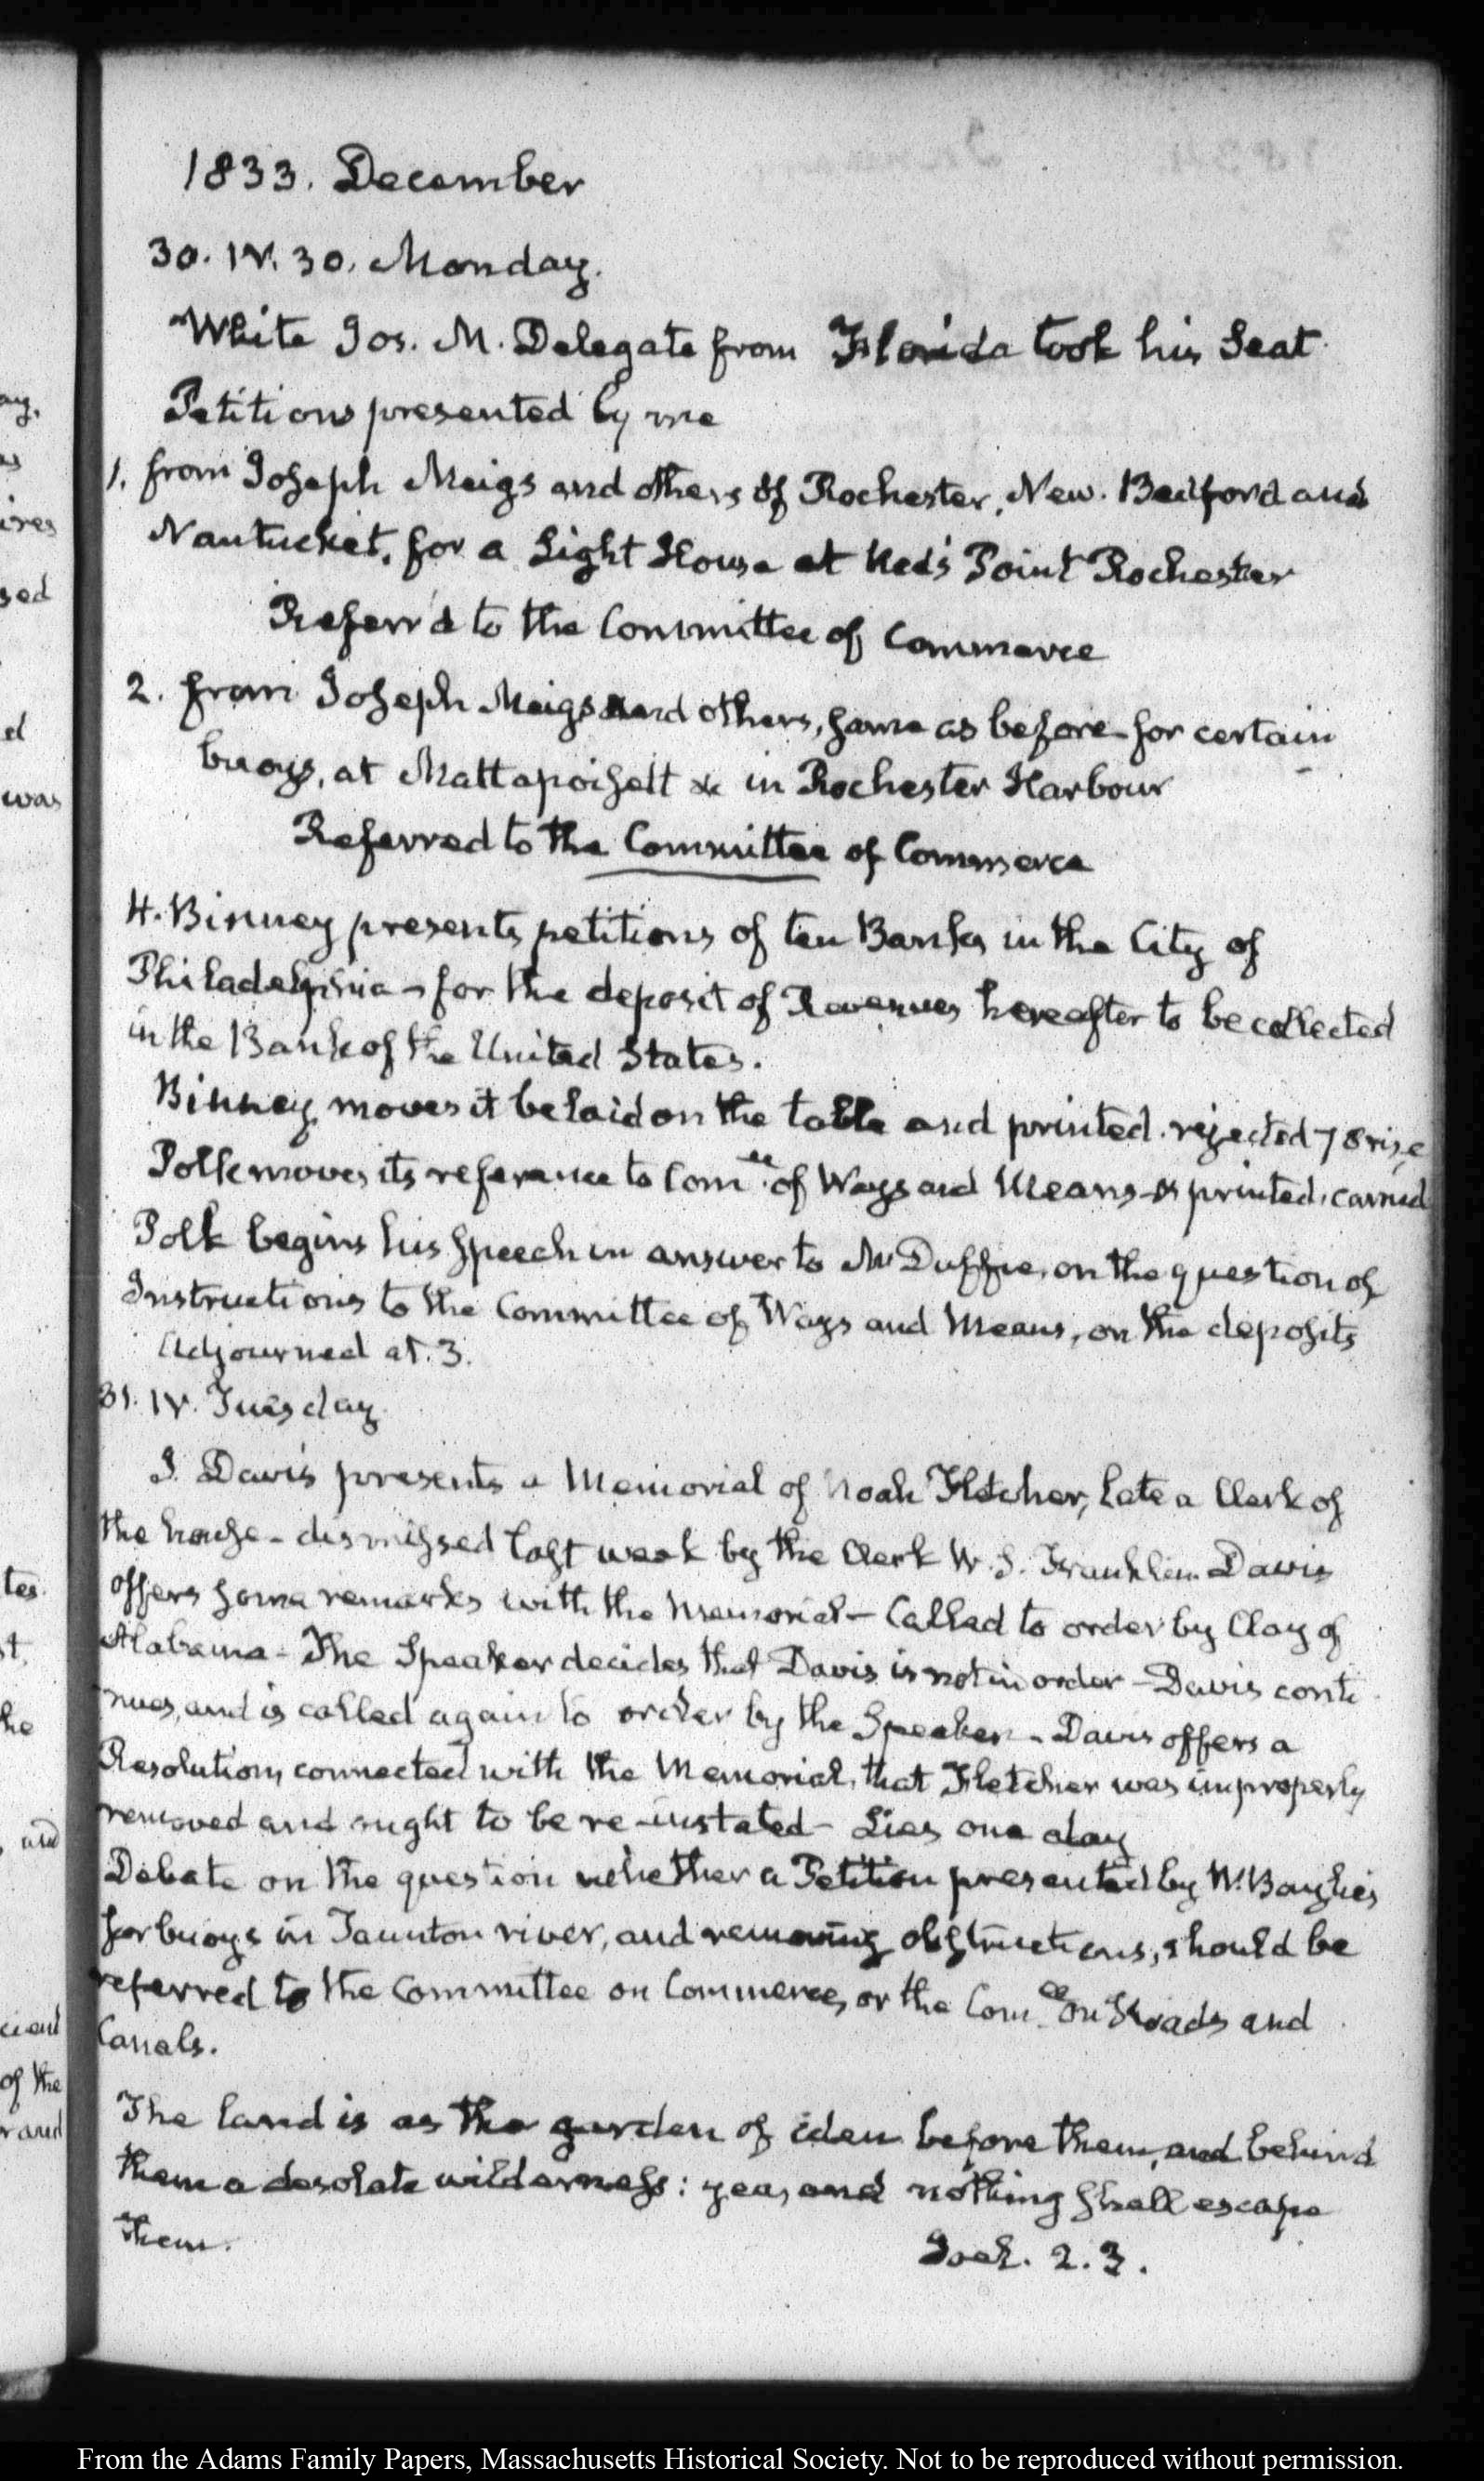 1833. December
30. IV. 30. Monday.
White Jos. M. Delegate from Florida took his Seat.
Petitions presented by me
1. from Joseph Meigs and others of Rochester, New-Bedford and
Nantucket, for a Light House at Ned's Point Rochester
Referr'd to the Committee of Commerce
2. from Joseph Meigs and others, same as before for certain
buoys, at Mattapoisett &c in Rochester Harbour
Referred to the Committee of Commerce
H. Binney presents petitions of ten Banks in the City of
Philadelphia - for the deposit of Revenues hereafter to be collected
in the Bank of the United States.
Binney moves it be laid on the table and printed. rejected 78 rise
Polk moves its reference to Com.ee of Ways and Means & printed, carried
Polk begins his Speech in answer to McDuffie, on the question of
Instructions to the Committee of Ways and Means, on the deposits
Adjourned at. 3.
31. IV. Tuesday
J. Davis presents a Memorial of Noah Fletcher, late a Clerk of
the house - dismissed last week by the Clerk W. S. Franklin Davis
offers some remarks with the Memorial - Called to order by Clay of
Alabama - The Speaker decides that Davis is not in order - Davis conti
nues, and is called again to order by the Speaker - Davis offers a
Resolution, connected with the Memorial, that Fletcher was improperly
removed and ought to be re-instated - Lies one day
Debate on the question whether a Petition presented by W. Baylies
for buoys in Taunton river, and removing obstructions, should be
referred to the Committee on Commerce, or the Com.ee on Roads and
Canals.
The land is as the garden of Eden before them, and behind
them a desolate wilderness: yea, and nothing shall escape
them.
Joel. 2. 3.
From the Adams Family Papers, Massachusetts Historical Society. Not to be reproduced without permission.